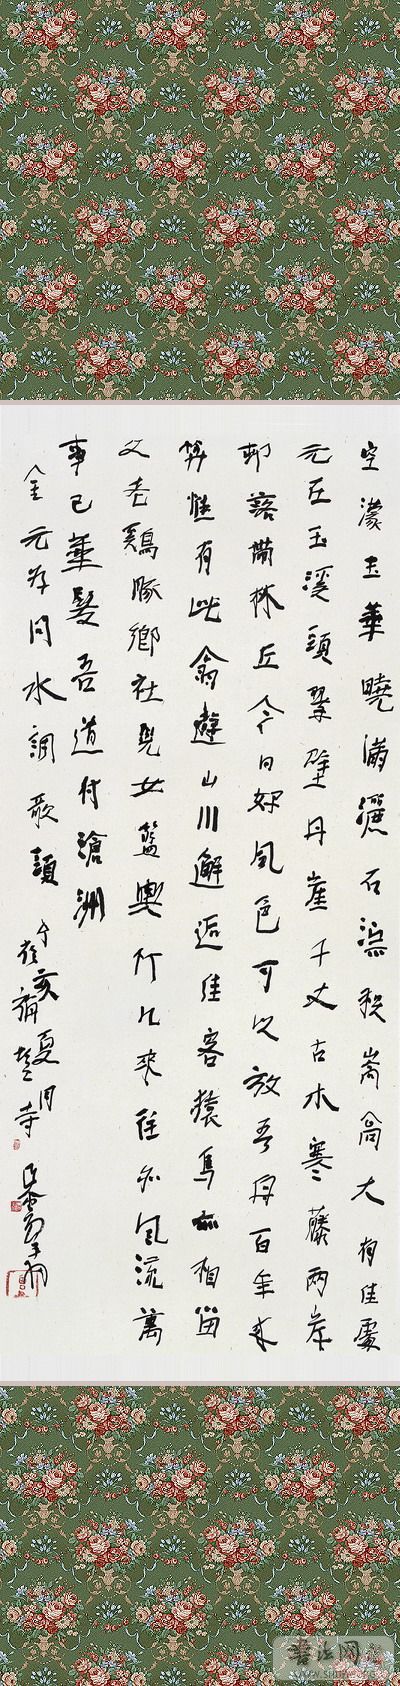 空濛玉華曉瀟灑石淙秋嵩高大有佳處
元在玉溪頭翠壁丹崖千丈古木寒藤兩岸
邨落帶林丘今日好風色可以放吾舟百年來
算惟有此翁遊山川邂逅佳客猿鳥亦相留
父老鷄豚鄉社兒女籃輿竹几來往亦風流萬
事已華髮吾道付滄洲
金元好問水調歌頭
亥夏月
书法网